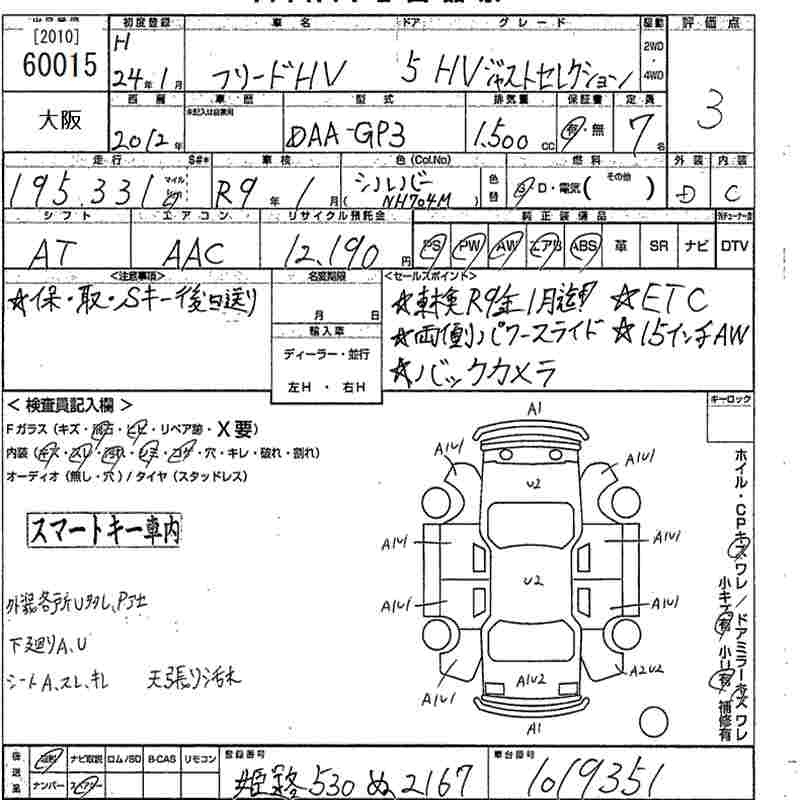 [2010]
60015
初度登録 車名 ドア グレード 駆動 評価点
H 24年1月 フリードHV 5 HVジャストセレクション 2WD・4WD 3
西暦 車歴 型式 排気量 保証書 定員
大阪 2012年 未記入は自家用 DAA-GP3 1,500cc 有・無 7名
走行 S#* 車検 色(Col.No) 燃料 外装 内装
195,331 マイル R9年1月 シルバー NH704M 色替 D・電気( その他 ) D C
シフト エアコン リサイクル預託金 純正装備品
AT AAC 12,190円 PS PW AW エアB ABS 革 SR ナビ DTV
<注意事項> 名変期限 <セールスポイント>
☆保・取・Sキー後日送り
月 日
輸入車
ディーラー・並行
左H・右H
☆車検R9年1月迄!! ☆ETC
☆両側パワースライド ☆15インチAW
☆バックカメラ
<検査員記入欄> キーロック
Fガラス(キズ・飛石・ヒビ・リペア跡・X要)
内装(キズ・スレ・汚れ・シミ・コゲ・穴・キレ・破れ・割れ)
オーディオ(無し・穴)/タイヤ(スタッドレス)
スマートキー車内
外装各所Uタクレ、P
下廻りA、U
シートA、スレ、キレ 天張り汚れ
A1
A1U1 A1U1
U2
A1U1 A1U1
U2
A1U1 A1U1
A1U1 A1U2 A2U2
A1
ホイル・CPキズワレ/ドアミラーキズワレ
小キズ有 小U有 補修有
後送品 ナビ取説 ロム/SD B-CAS リモコン 登録番号 車台番号
ナンバー 姫路 530 ぬ 2167 1019351